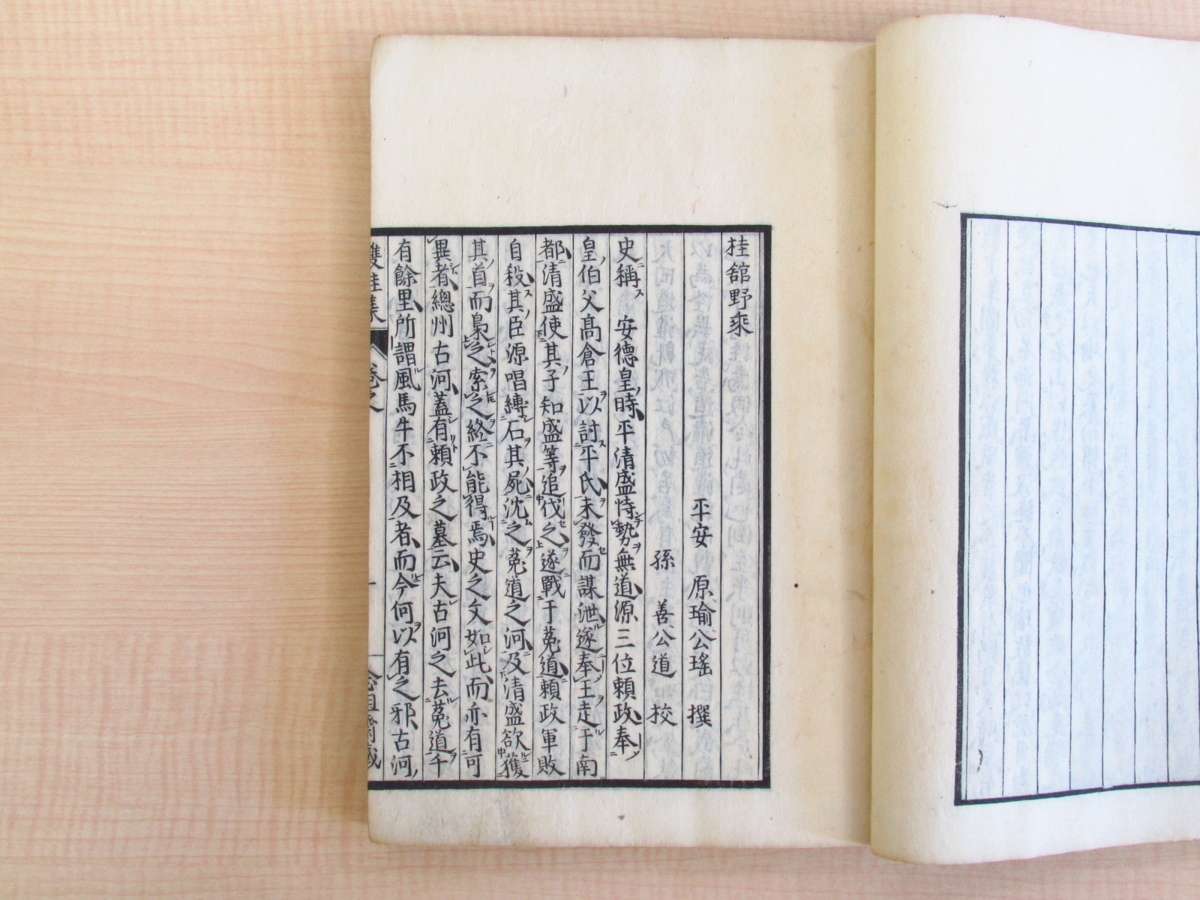 桂舘野乘
平安 原瑜公瑤 撰
孫 善公道 校
史稱 安德皇時平清盛恃勢無道源三位賴政奉
皇伯父髙倉王以討平氏未發而謀泄遂奉王走于南
都清盛使其子知盛等追伐之遂戰于菟道賴政軍敗
自殺其臣源唱縛石其屍沈之菟道之河及清盛欲獲
其首而梟之索之終不能得焉史之文如此而亦有可
異者總州古河蓋有賴政之墓云夫古河之去菟道千
有餘里所謂風馬牛不相及者而今何以有之邪古河
雙桂集 卷之 一